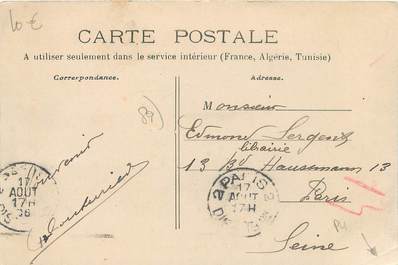 10 €
CARTE POSTALE
A utiliser seulement dans le service intérieur (France, Algérie, Tunisie)
Correspondance.
Adresse.
89
Monsieur
Edmond Sergent
librairie
13 Bd Haussmann 13
Paris
Seine
17
AOUT
17H
08
PARIS 2
17
AOUT
17H
DIS